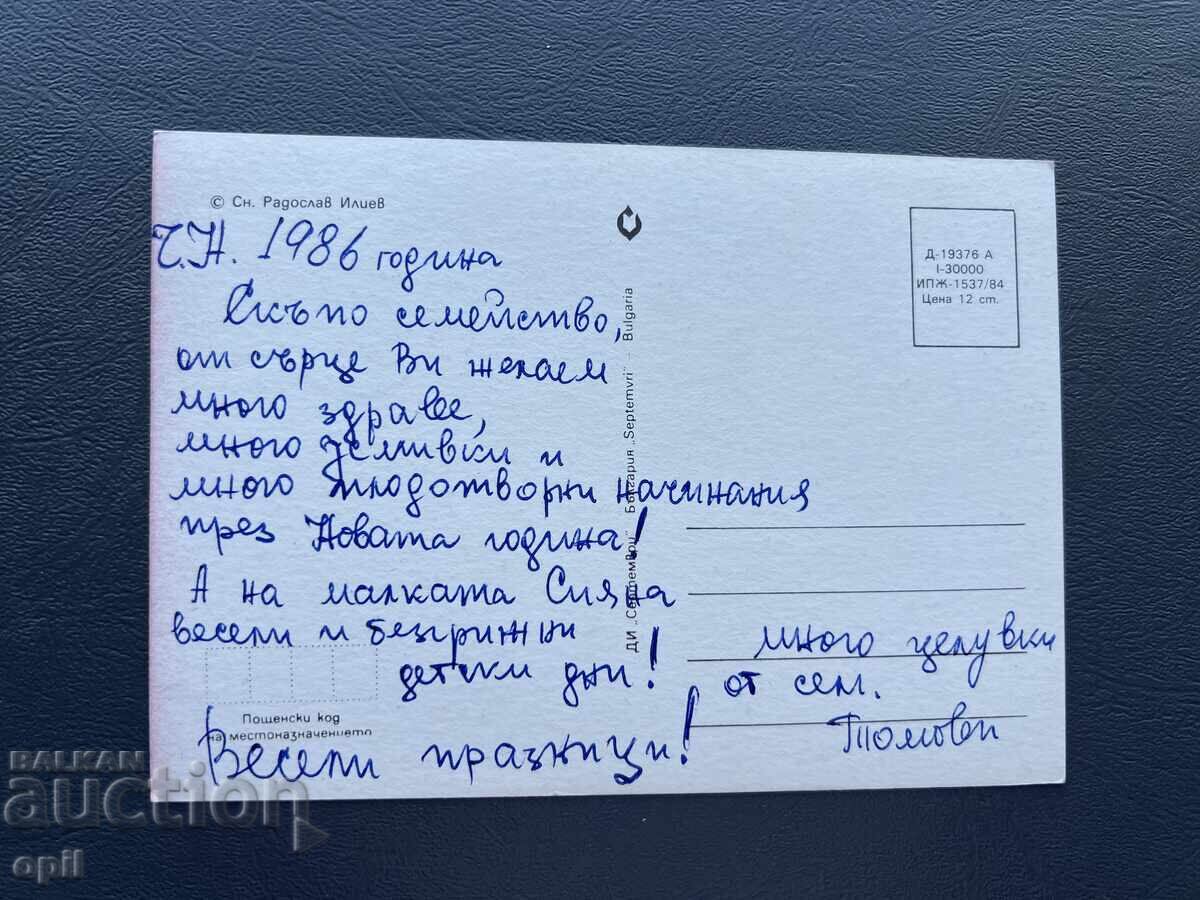 © Сн. Радослав Илиев
Ч.Н. 1986 година
Скъпо семейство,
от сърце Ви желаем
много здраве,
много усмивки и
много плодотворни начинания
през Новата година!
А на малката Сияна
весели и безгрижни
детски дни!
Весели празници!
Пощенски код
на местоназначението
ДИ „Септември" България „Septemvri" - Bulgaria
Д-19376 А
I-30000
ИПЖ-1537/84
Цена 12 ст.
много целувки
от сем.
Томови
BALKAN
auction
opil